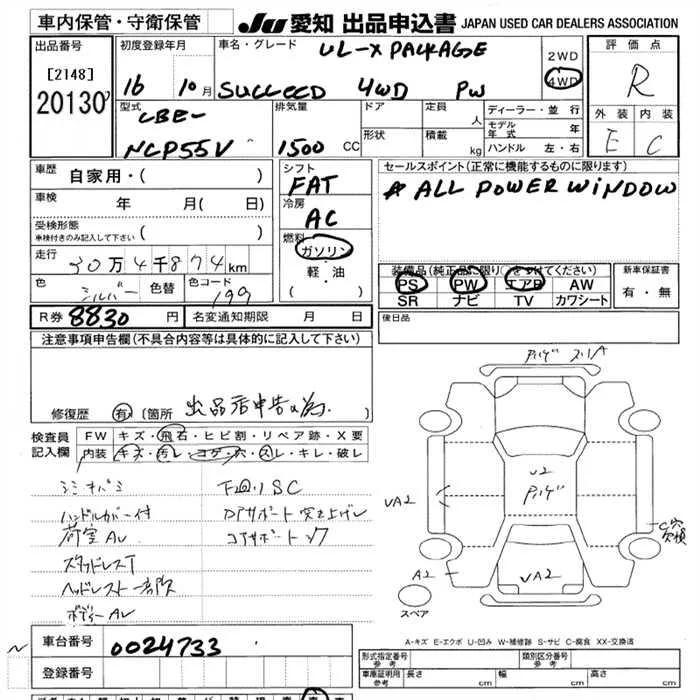 車内保管・守衛保管
JU 愛知 出品申込書 JAPAN USED CAR DEALERS ASSOCIATION
出品番号
[2148]
20130
初度登録年月
16 10月
車名・グレード UL-X PACKAGE
SUCCEED 4WD PW
2WD
4WD
評価点
R
外装 内装
E C
型式
CBE-
NCP55V
排気量
1500 CC
ドア
形状
定員 人
積載 kg
ディーラー・並行
モデル年式 年
ハンドル 左・右
車歴 自家用・( )
車検 年 月( 日)
受検形態
車検付きのみ記入して下さい ( )
走行 30万4千874km
色 シルバー 色替 色コード 199
シフト
FAT
冷房
AC
燃料
ガソリン
・
軽・油
( )
セールスポイント(正常に機能するものに限ります)
ALL POWER WINDOW
装備品(純正品に限り○をつけてください)
PS PW エアB AW
SR ナビ TV カワシート
新車保証書
有・無
R券 8830 円 名変通知期限 月 日
後日品
注意事項申告欄(不具合内容等は具体的に記入して下さい)
修復歴 有 [箇所 出品店申告の為
検査員
記入欄
FW キズ・飛石・ヒビ割・リペア跡・X要
内装 キズ・汚レ・コゲ・穴・スレ・キレ・破レ
下回りSC
ハンドルカバー付
荷室AU
スタッドレスT
コアサポート
ボディーAU
U2
UA2
UA2
A2
スペア
A-キズ E-エクボ U-凹み W-補修跡 S-サビ C-腐食 XX-交換済
車台番号 0024733
登録番号
形式指定番号
参考
類別区分番号
参考
車庫証明用
参考
長さ cm 幅 cm 高さ cm